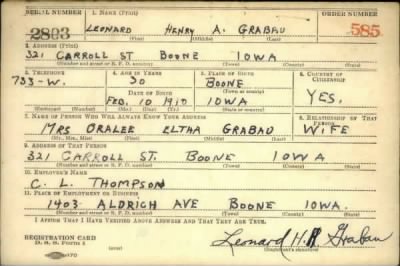 SERIAL NUMBER 1. NAME (Print) ORDER NUMBER
2803 LEONARD HENRY A. GRABAU 585
(First) (Middle) (Last)
2. ADDRESS (Print)
321 CARROLL ST BOONE IOWA
(Number and street or R. F. D. number) (Town) (County) (State)
3. TELEPHONE 4. AGE IN YEARS 5. PLACE OF BIRTH 6. COUNTRY OF CITIZENSHIP
733-W. 30 BOONE
DATE OF BIRTH (Town or county)
FEB. 10 1910 IOWA YES.
(Exchange) (Number) (Mo.) (Day) (Yr.) (State or country)
7. NAME OF PERSON WHO WILL ALWAYS KNOW YOUR ADDRESS 8. RELATIONSHIP OF THAT PERSON
MRS ORALEE ELTHA GRABAU WIFE
(Mr., Mrs., Miss) (First) (Middle) (Last)
9. ADDRESS OF THAT PERSON
321 CARROLL ST. BOONE IOWA
(Number and street or R. F. D. number) (Town) (County) (State)
10. EMPLOYER'S NAME
C. L. THOMPSON
11. PLACE OF EMPLOYMENT OR BUSINESS
1403 ALDRICH AVE BOONE IOWA.
(Number and street or R. F. D. number) (Town) (County) (State)
I AFFIRM THAT I HAVE VERIFIED ABOVE ANSWERS AND THAT THEY ARE TRUE.
REGISTRATION CARD
D. S. S. Form 1
Leonard H. Grabau